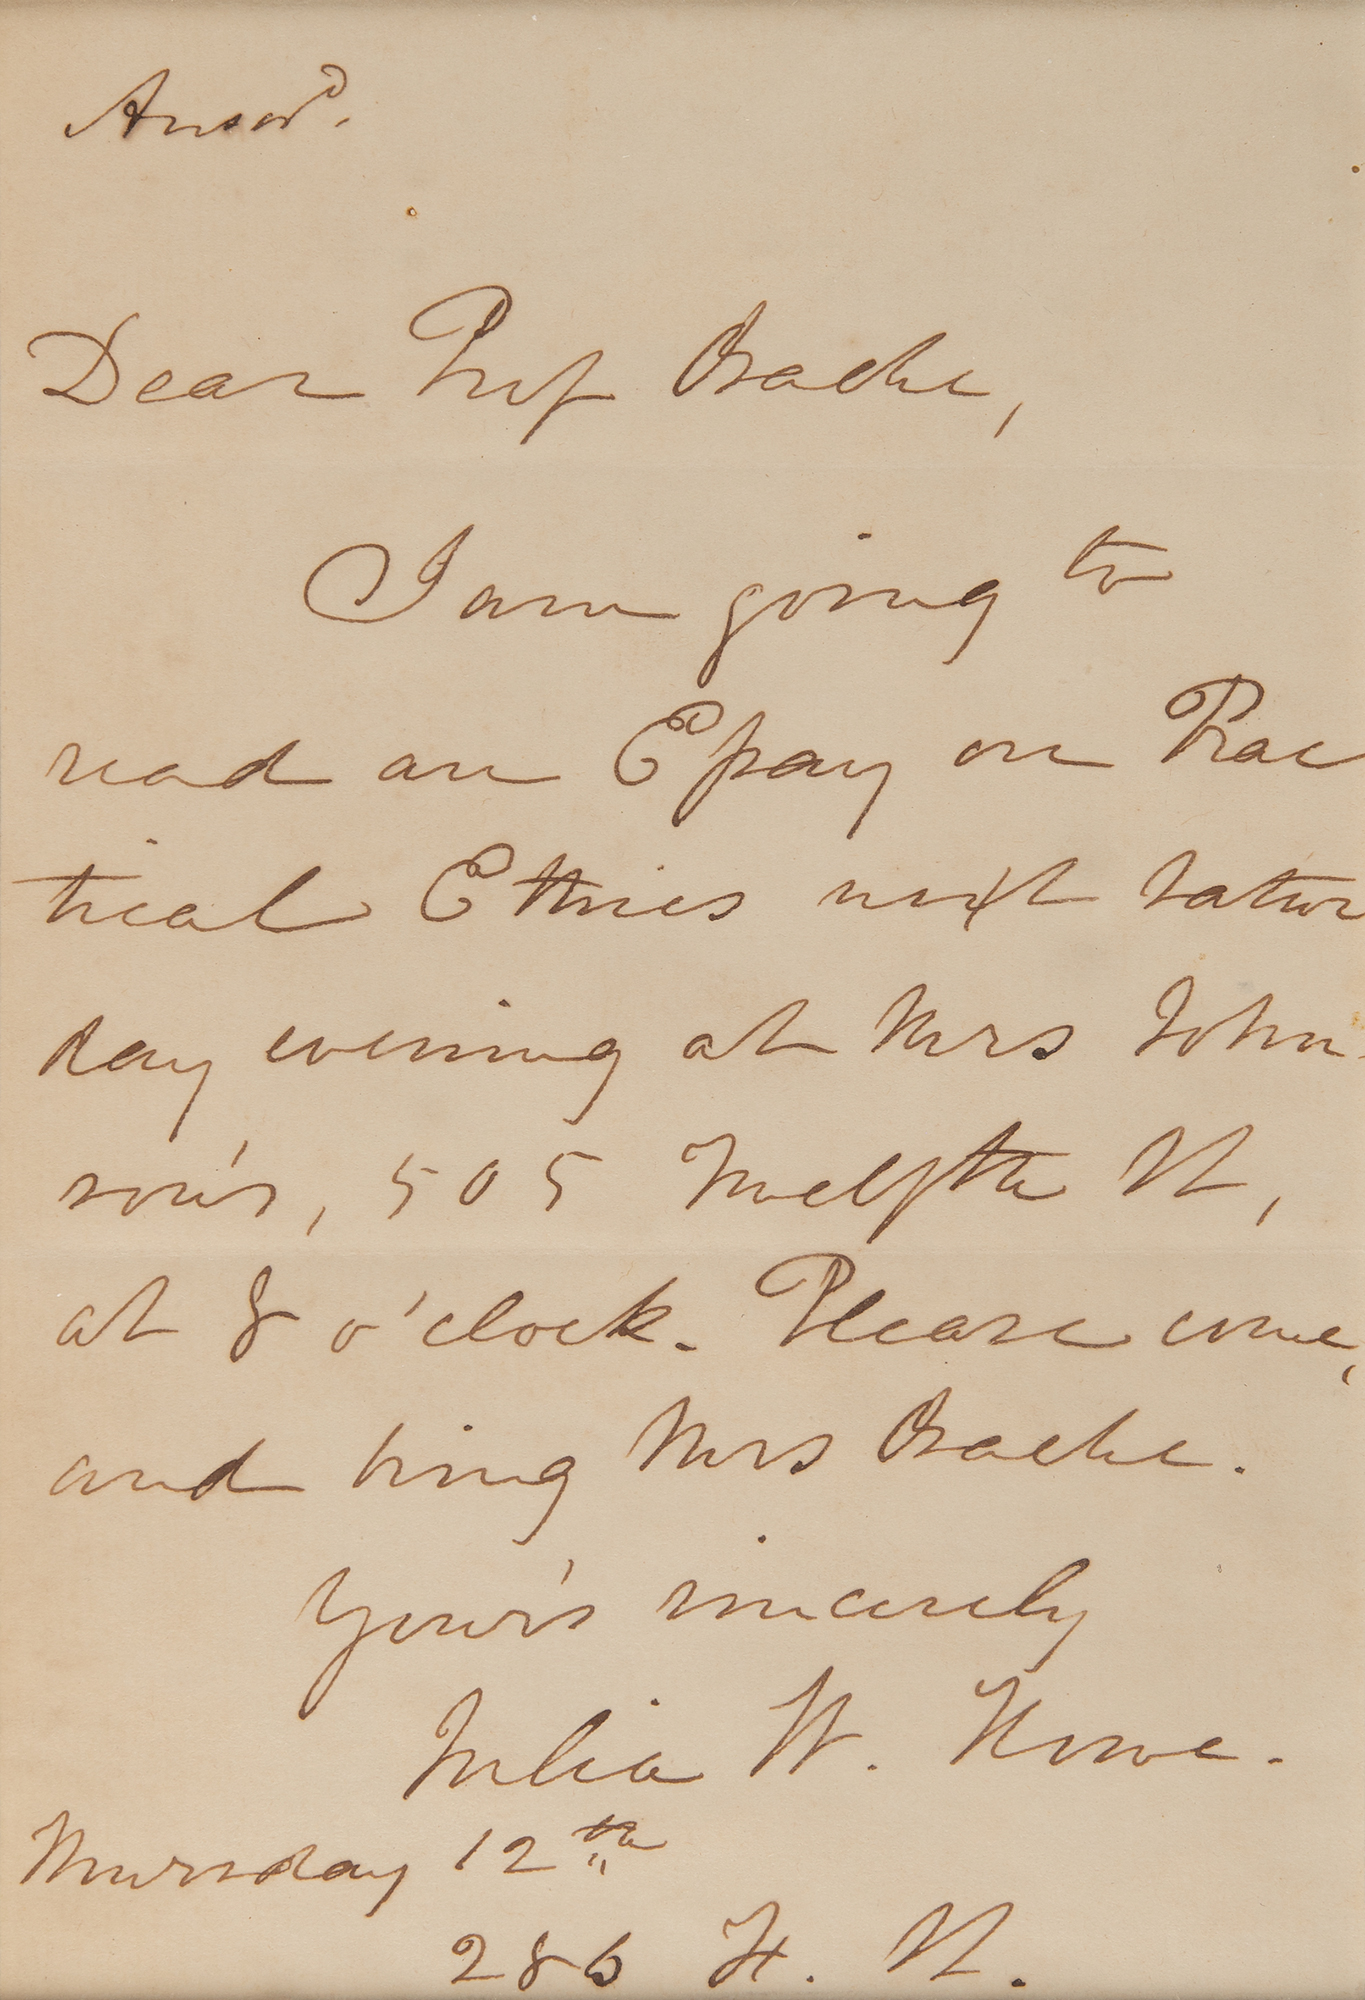 Answd.
Dear Prof Bache,
I am going to
read an Essay on Prac
tical Ethics next Satur
day evening at Mrs John-
son's, 505 Twelfth St,
at 8 o'clock. Please come,
and bring Mrs Bache.
Your's sincerely
Julia W. Howe.
Thursday 12th
286 F. St.